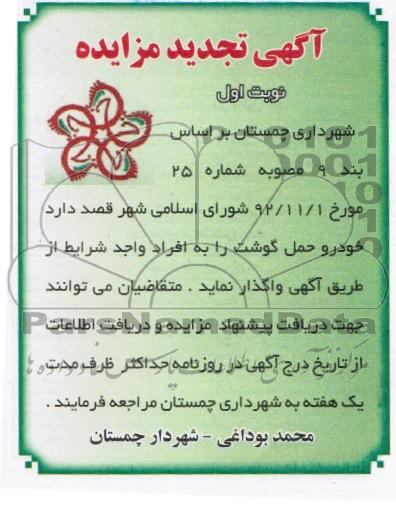 آگهی تجدید مزایده
نوبت اول
شهرداری چمستان بر اساس
بند ۹ مصوبه شماره ۲۵
مورخ ۹۲/۱۱/۱ شورای اسلامی شهر قصد دارد
خودرو حمل گوشت را به افراد واجد شرایط از
طریق آگهی واگذار نماید . متقاضیان می توانند
جهت دریافت پیشنهاد مزایده و دریافت اطلاعات
از تاریخ درج آگهی در روزنامه حداکثر ظرف مدت
یک هفته به شهرداری چمستان مراجعه فرمایند .
محمد بوداغی - شهردار چمستان
ParsNamadData